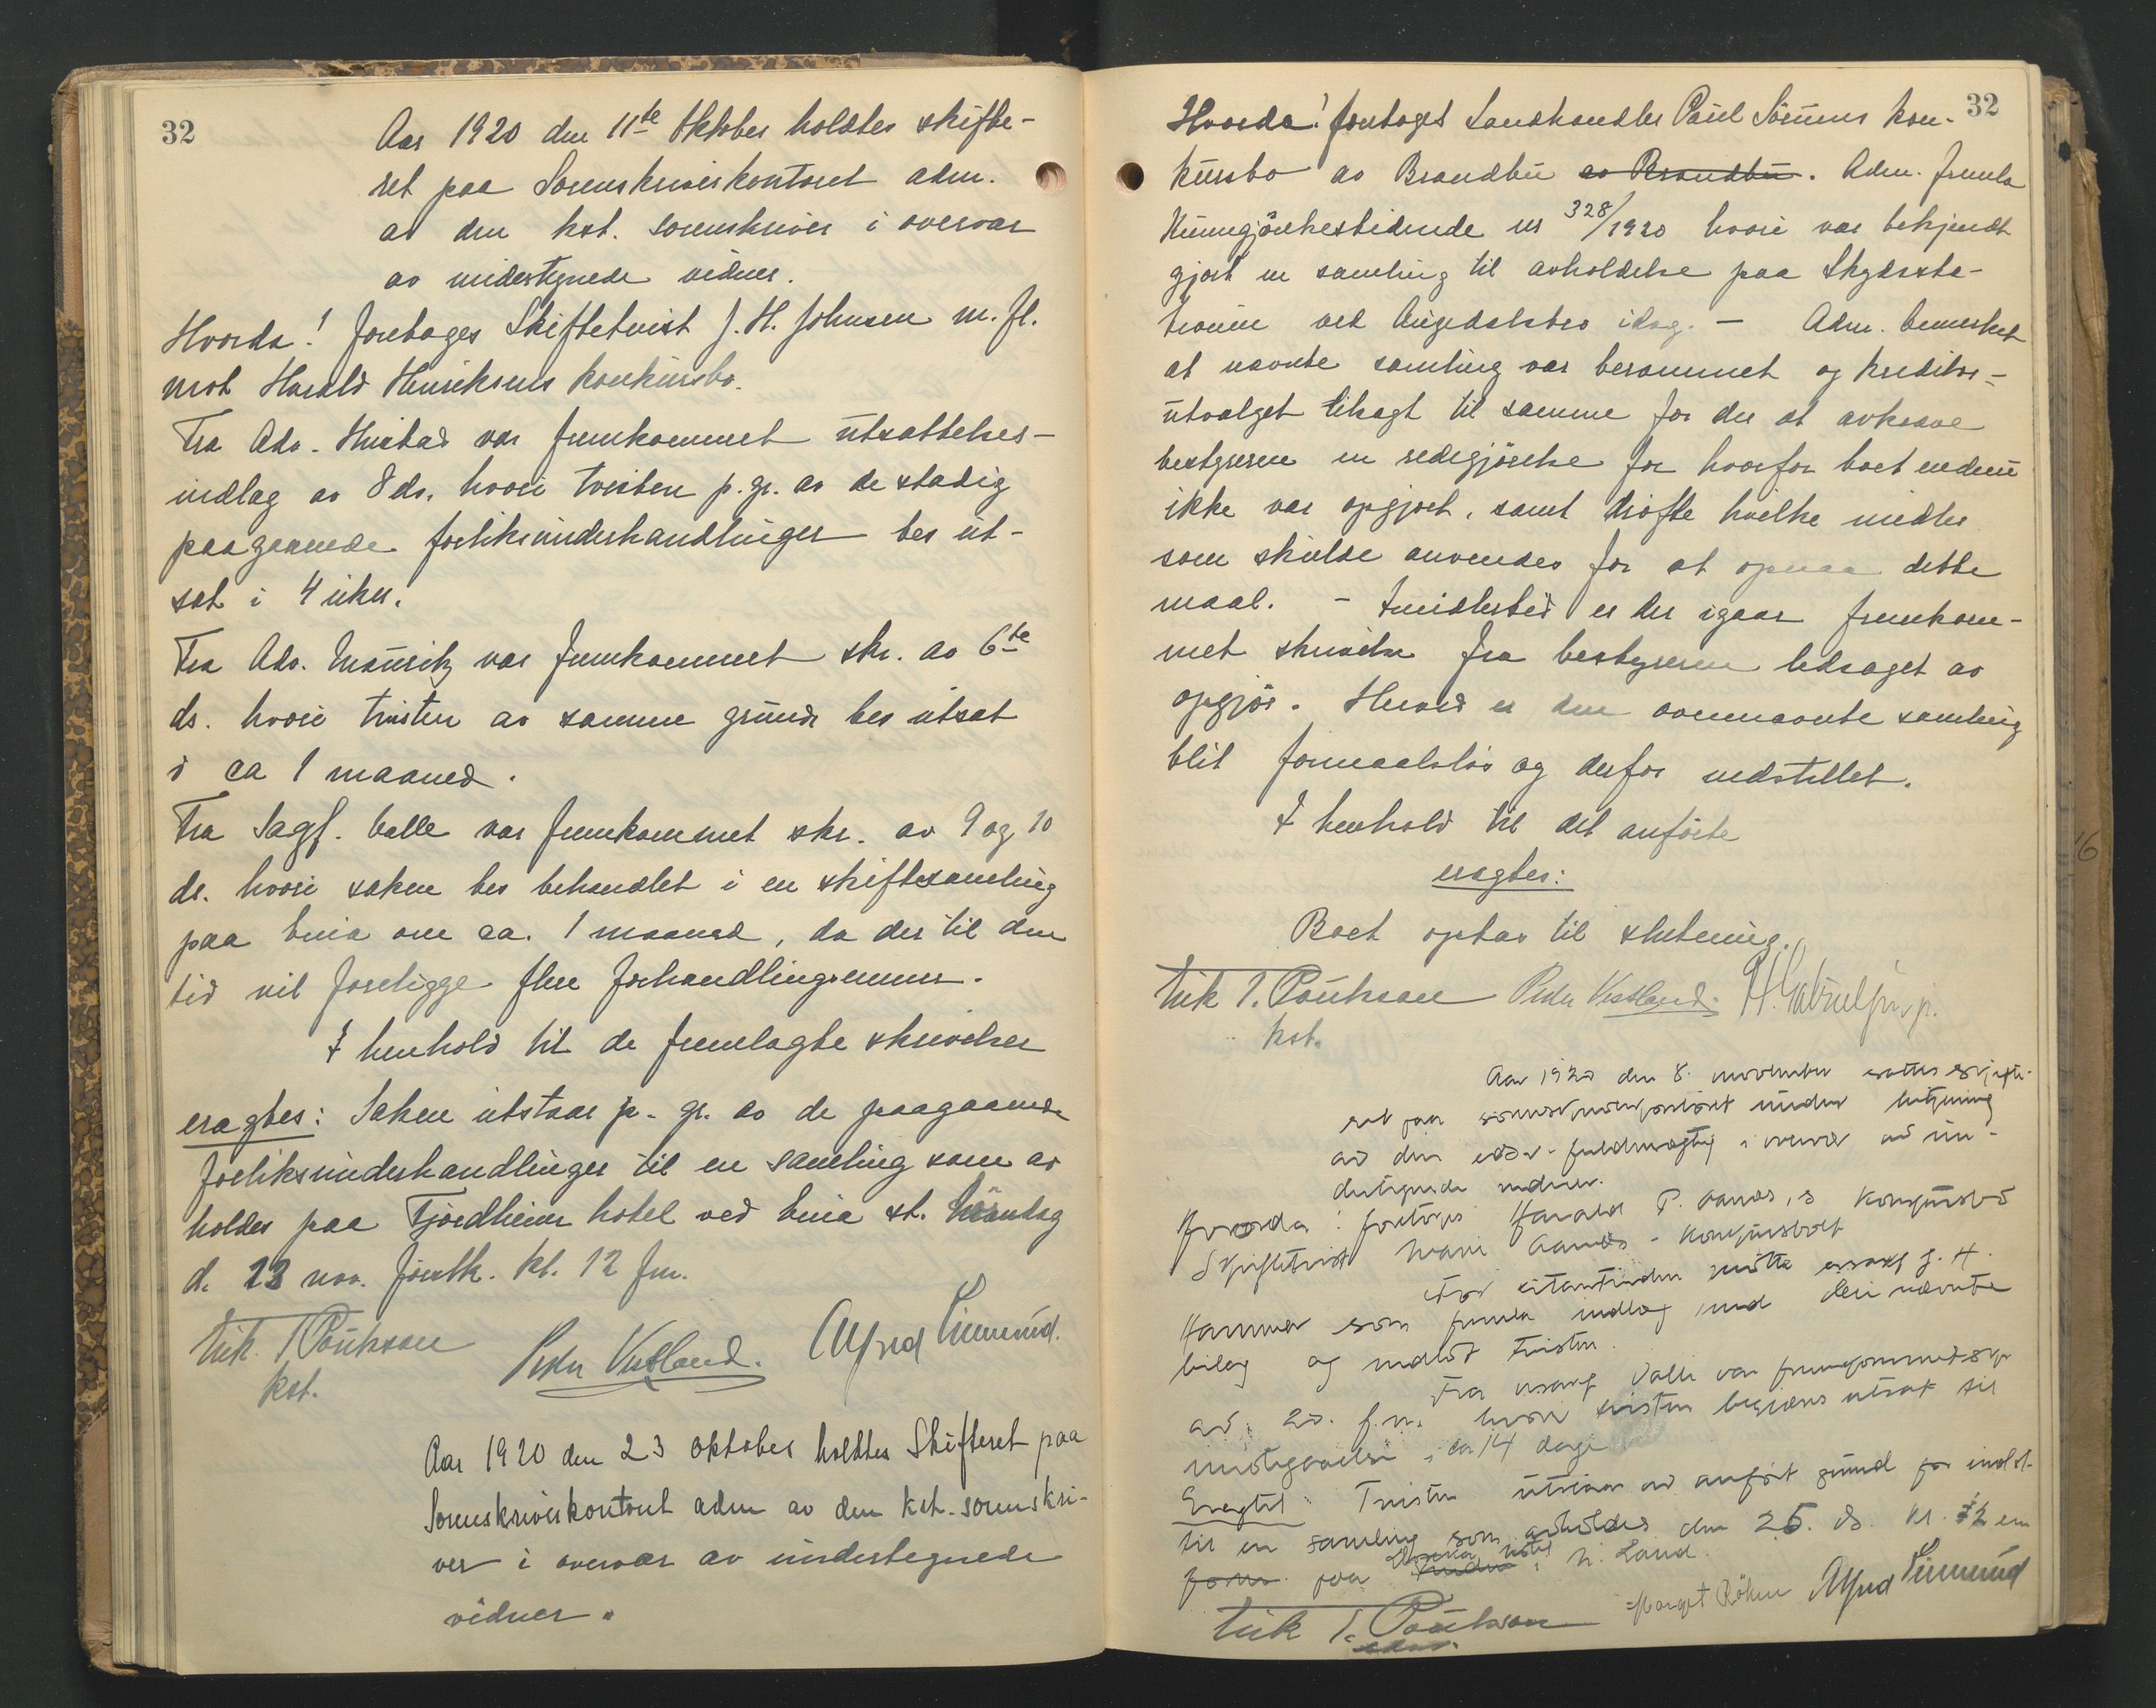 32
Aar 1920 den 11te Oktober holdtes skifte-
ret paa Sorenskriverkontoret adm.
av den kst. sorenskriver i overvær
av undertegnede vidner.
Hvorda! foretoges Skiftetvist J. H. Johnsen m. fl.
mot Harald Henriksens konkursbo.
Fra Adv. Hustad var fremkommet utsættelses-
indlæg av 8 ds. hvori tvisten p. gr. av de stadig
paagaaende forliksunderhandlinger bes ut-
sat i 4 uker.
Fra Adv. Mauritz var fremkommet skr. av 6te
ds. hvori tvisten av samme grund bes utsat
i ca 1 maaned.
Fra Sagf. Valle var fremkommet skr. av 9 og 10
ds. hvori saken bes behandlet i en skiftesamling
paa Eina om ca. 1 maaned, da der til den
tid vil foreligge flere forhandlingsemner.
I henhold til de fremlagte skrivelser
eragtes: Saken utstaar p. gr. av de paagaaende
forliksunderhandlinger til en samling som av
holdes paa Fjordheim hotel ved Eina st. Mandag
d. 22 nov. førstk. kl. 12 fm.
Eirik T. Poulsson Peder Vestland. Alfred Simmund.
kst.
Aar 1920 den 23 oktober holdtes Skifteret paa
Sorenskriverkontoret adm av den kst. sorenskri-
ver i overvær av undertegnede
vidner.
32
Hvorda! foretoges Landhandler Paul Sörums kon-
kursbo av Brandbu av Brandbu. Adm. fremla
Kunngjörelsestidende nr 328/1920 hvori var bekjendt
gjort en samling til avholdelse paa Skydssta-
tionen ved Augedalsbro idag. – Adm. bemerket
at nævnte samling var berammet og kreditor-
utvalget tilsagt til samme for der at avkræve
bestyreren en redegjörelse for hvorfor boet endnu
ikke var opgjort, samt dröfte hvilke midler
som skulde anvendes for at opnaa dette
maal. – Imidlertid er der igaar fremkom-
met skrivelse fra bestyreren ledsaget av
opgjör. Herved er den ovennævnte samling
blit formaalslös og derfor indstillet.
I henhold til det anförte
eragtes:
Boet optas til slutning.
Eirik T. Poulsson Peder Vestland. H. Gabrielsen jr.
kst.
Aar 1920 den 8. november sattes skifte-
ret paa sorenskriverkontoret under betjening
av den edsv. fuldmægtig i overvær av un-
dertegnede vidner.
Hvorda: foretoges Harald P. Aanes's konkursbo
Skiftetvist Marie Aanes - konkursboet
For citantinden mötte orsakf J. H.
Hammer som fremla indlæg med deri nævnte
bilag og indlod tvisten.
Fra orsakf Valle var fremkommet skr
av 20. f.m. hvori tvisten begjæres utsat til
imötegaaelse i ca 14 dage
Eragtet: Tvisten utstaar av anfört grund
til en samling som avholdes den 25. ds. kl. 12 em
paa hotel i N. Land.
Eirik T. Poulsson Margit Röhne Alfred Simmund
edsv.
16